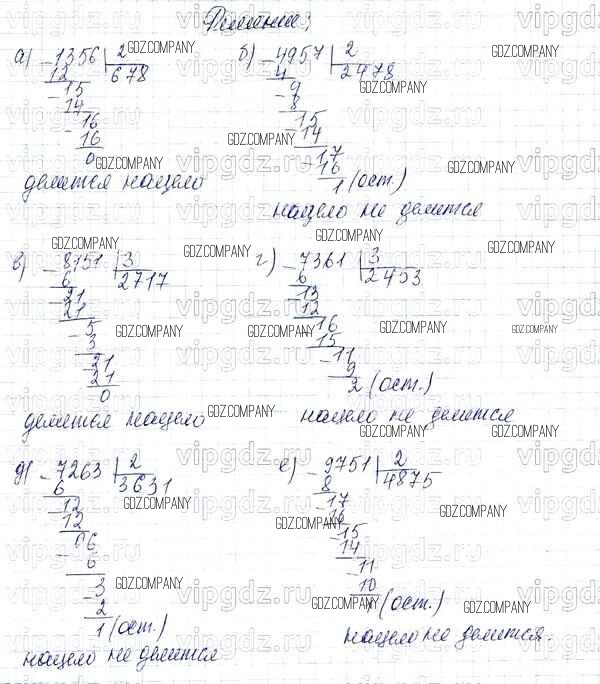 Решение:
а) -1356 | 2 б) -4957 | 2
12 678 4 2478
-15 -9
14 8
-16 -15
16 14
0 -17
делится нацело 16
1 (ост.)
нацело не делится
в) -8151 | 3 г) -7361 | 3
6 2717 6 2453
-21 -13
21 12
-5 -16
3 15
-21 -11
21 9
0 2 (ост.)
делится нацело нацело не делится
д) -7263 | 2 е) -9751 | 2
6 3631 8 4875
-12 -17
12 16
06 -15
-6 14
-3 -11
2 10
1 (ост.) 1 (ост.)
нацело не делится нацело не делится.
GDZ.COMPANY
vipgdz.ru